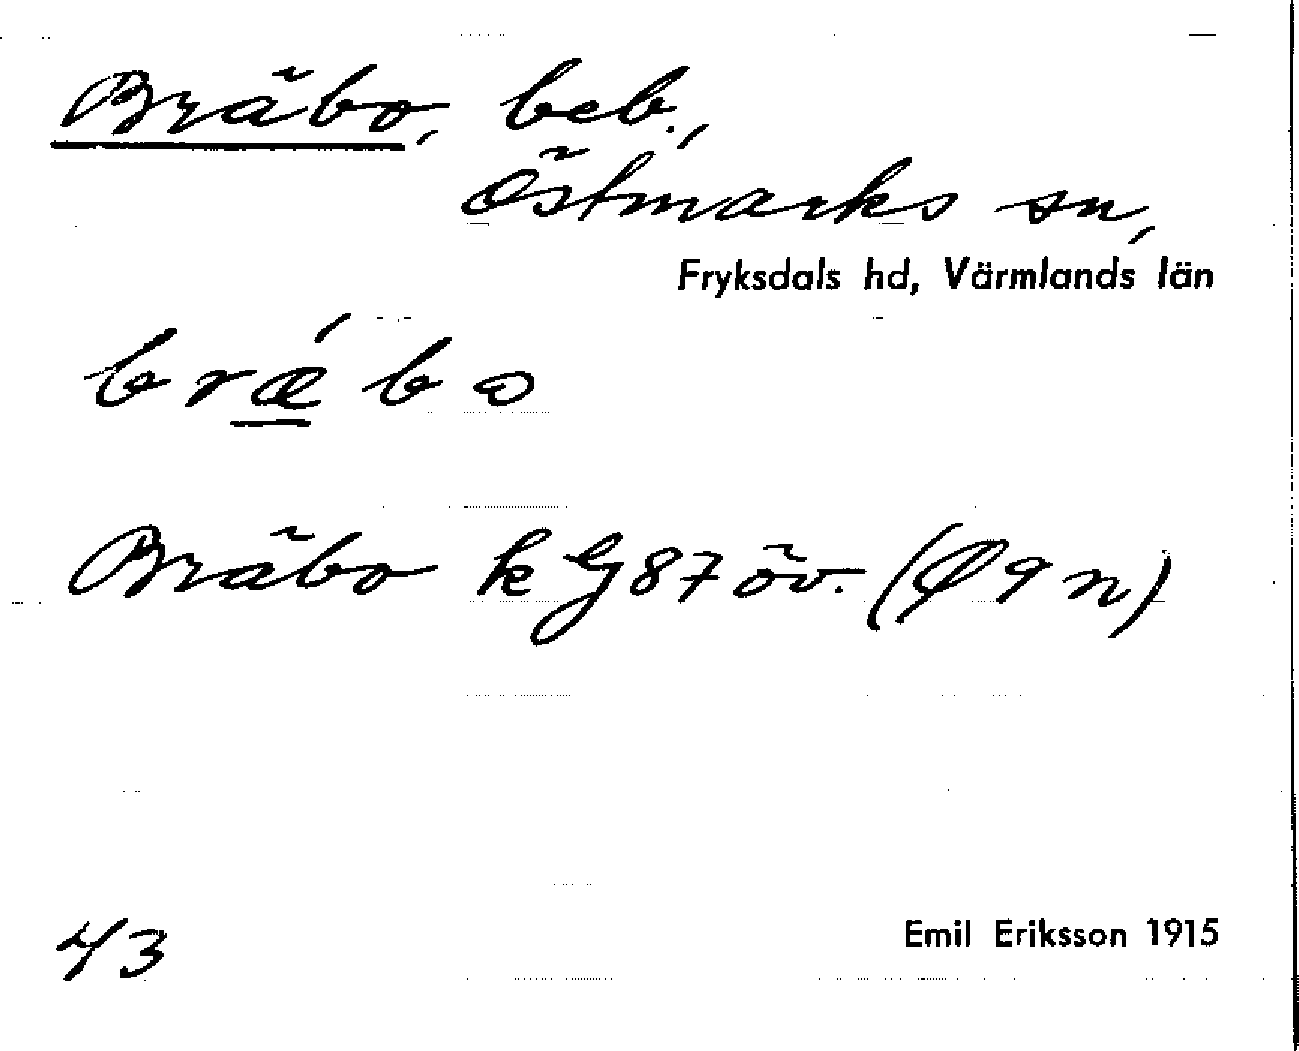 Bräbo, beb.,
Östmarks sn,
Fryksdals hd, Värmlands län
brǽbo
Bräbo k G 87 öv. (Ø 9 n)
43
Emil Eriksson 1915